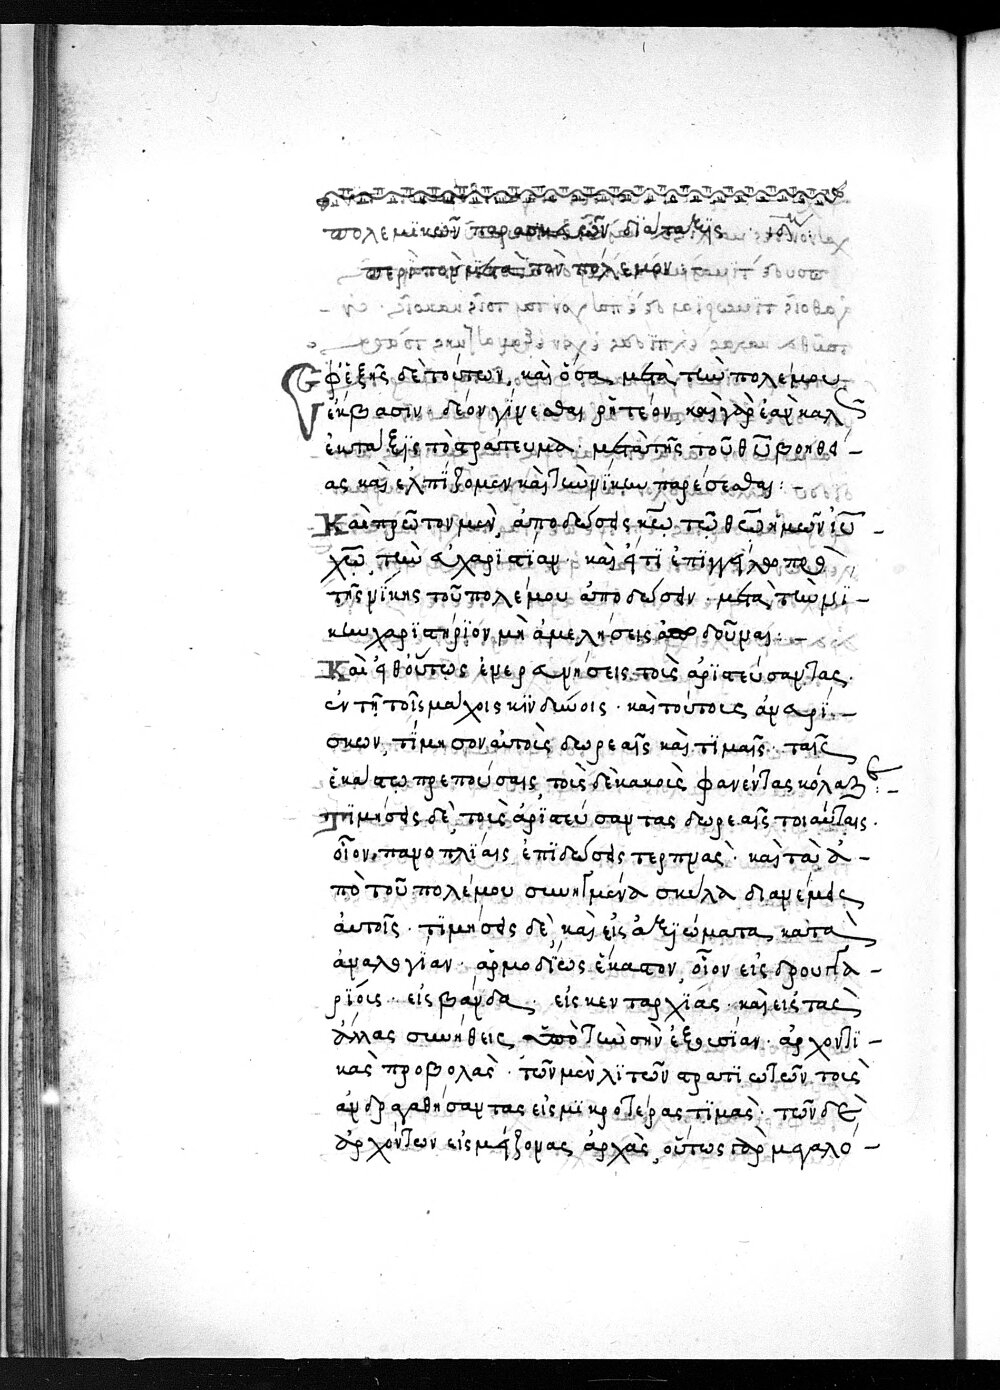 πολεμικῶν παρασκευῶν διάταξις
περὶ τῶν μετὰ τὸν πόλεμον
Ἐφεξῆς δὲ τούτων, καὶ ὅσα μετὰ τὴν πολέμου
ἔκβασιν δέον γίνεσθαι ῥητέον, καὶ γὰρ ἐὰν καλῶς
ἐκτάξῃς τὸ στράτευμα μετὰ τῆς τοῦ θυ βοηθεί–
ας καὶ ἐλπίζομεν καὶ τὴν νίκην παρέσεσθαι:
Καὶ πρῶτον μὲν, ἀποδώσεις κω τῷ θεῷ ἡμῶν ιυ
χω τὴν εὐχαριστίαν. καὶ εἴ τι ἐπιγγείλω πρὸ
τῆς νίκης τοῦ πολέμου ἀποδώσειν. μετὰ τὴν νί–
κην χαριστήριον μὴ ἀμελήσεις ἀποδοῦναι: –
Καὶ εἶθ' οὕτως ἐπερευνήσεις τοὺς ἀριστεύσαντας
ἐν τῇ τοῖς μάχοις κινδύνοις. καὶ τούτοις εὐαρι–
σκων, τίμησον αὐτοὺς δωρεαῖς καὶ τιμαῖς ταῖς
ἑκάστω πρεπούσαις, τοὺς δὲ κακοὺς φανέντας κόλαζε: –
τιμήσεις δὲ, τοὺς ἀριστεύσαντας δωρεαῖς τοιαύταις.
οἷον, πανοπλίαις ἐπιδώσεις τερπνὰς. καὶ τὰ ἀ–
πὸ τοῦ πολέμου συνηγμένα σκύλα διανέμεις
αὐτοῖς. τιμήσεις δὲ καὶ εἰς ἀξιώματα κατὰ
ἀναλογίαν. ἁρμοδίως ἕκαστον, οἷον εἰς δρουγγα–
ρίους. εἰς βάνδα. εἰς κενταρχίας. καὶ εἰς τὰς
ἄλλας συνήθεις ὑπὸ τὴν σὴν ἐξουσίαν. ἀρχοντι–
κὰς προβολὰς. τῶν μὲν λιτῶν στρατιωτῶν τοὺς
ἀνδραγαθήσαντας εἰς μικροτέρας τιμὰς. τῶν δὲ
ἀρχόντων εἰς μείζονας ἀρχὰς, οὕτως γὰρ μεγαλό–